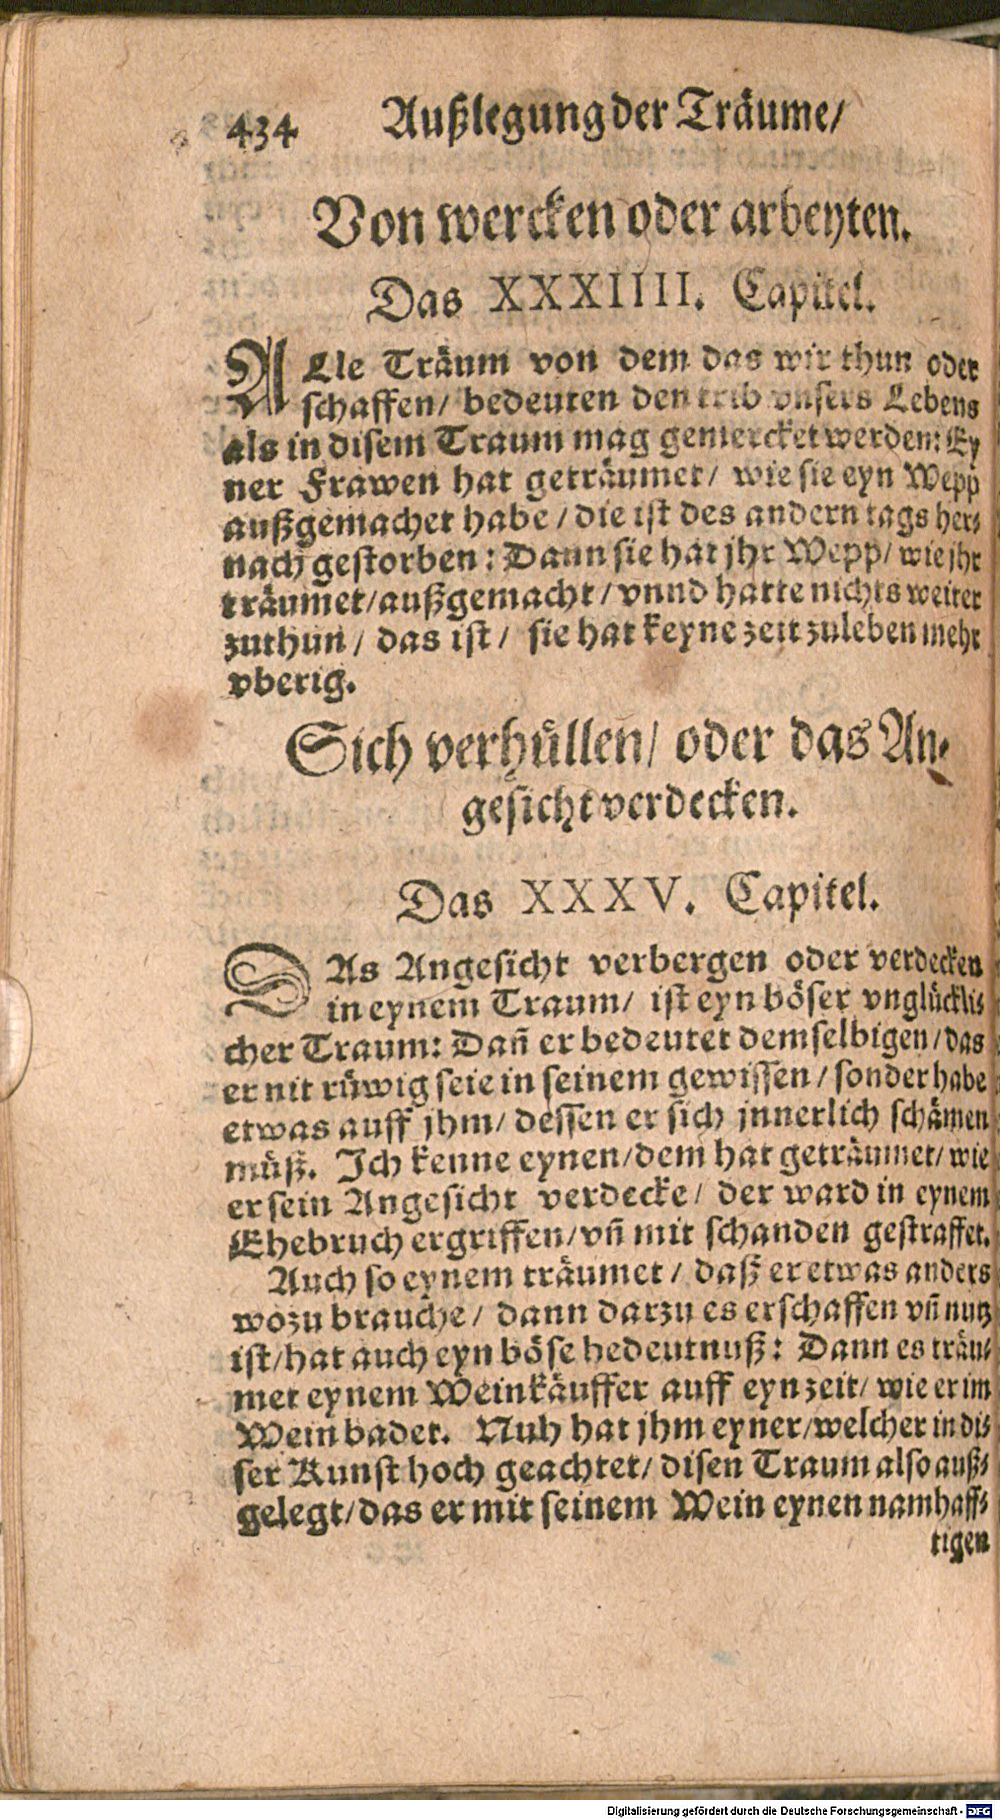 434 Außlegung der Träume/
Von wercken oder arbeyten.
Das XXXIIII. Capitel.
ALle Träum von dem das wir thun oder
schaffen/ bedeuten den trib vnsers Lebens
als in disem Traum mag gemercket werden: Ey
ner Frawen hat geträumet/ wie sie eyn Wepp
außgemachet habe/ die ist des andern tags her-
nach gestorben: Dann sie hat jhr Wepp/ wie jhr
träumet/ außgemacht/ vnnd hatte nichts weiter
zuthun/ das ist/ sie hat keyne zeit zuleben mehr
vberig.
Sich verhüllen/ oder das An-
gesicht verdecken.
Das XXXV. Capitel.
DAs Angesicht verbergen oder verdecken
in eynem Traum/ ist eyn böser vnglückli-
cher Traum: Dañ er bedeutet demselbigen/ das
er nit rüwig seie in seinem gewissen/ sonder habe
etwas auff jhm/ dessen er sich jnnerlich schämen
müß. Ich kenne eynen/ dem hat geträumet/ wie
er sein Angesicht verdecke/ der ward in eynem
Ehebruch ergriffen/ vñ mit schanden gestraffet.
Auch so eynem träumet/ daß er etwas anders
wozu brauche/ dann darzu es erschaffen vñ nutz
ist/ hat auch eyn böse bedeutnuß: Dann es träu-
met eynem Weinkäuffer auff eyn zeit/ wie er im
Wein badet. Nuh hat jhm eyner/ welcher in di-
ser Kunst hoch geachtet/ disen Traum also auß-
gelegt/ das er mit seinem Wein eynen namhaff-
tigen
Digitalisierung gefördert durch die Deutsche Forschungsgemeinschaft - DFG